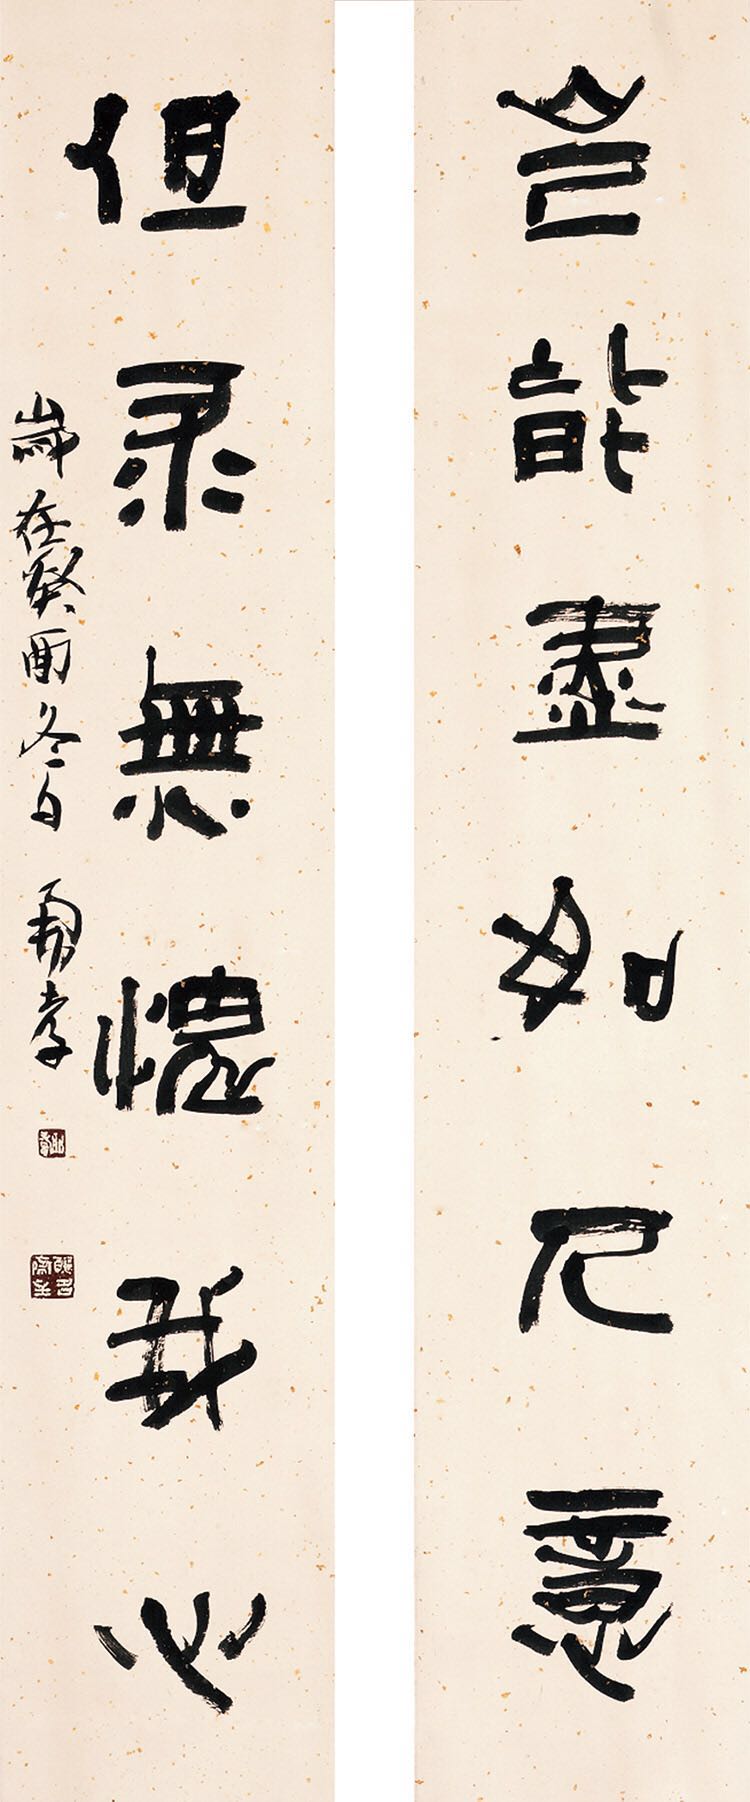 豈能盡如人意
但求無愧我心
歲在癸酉冬日 勇孝